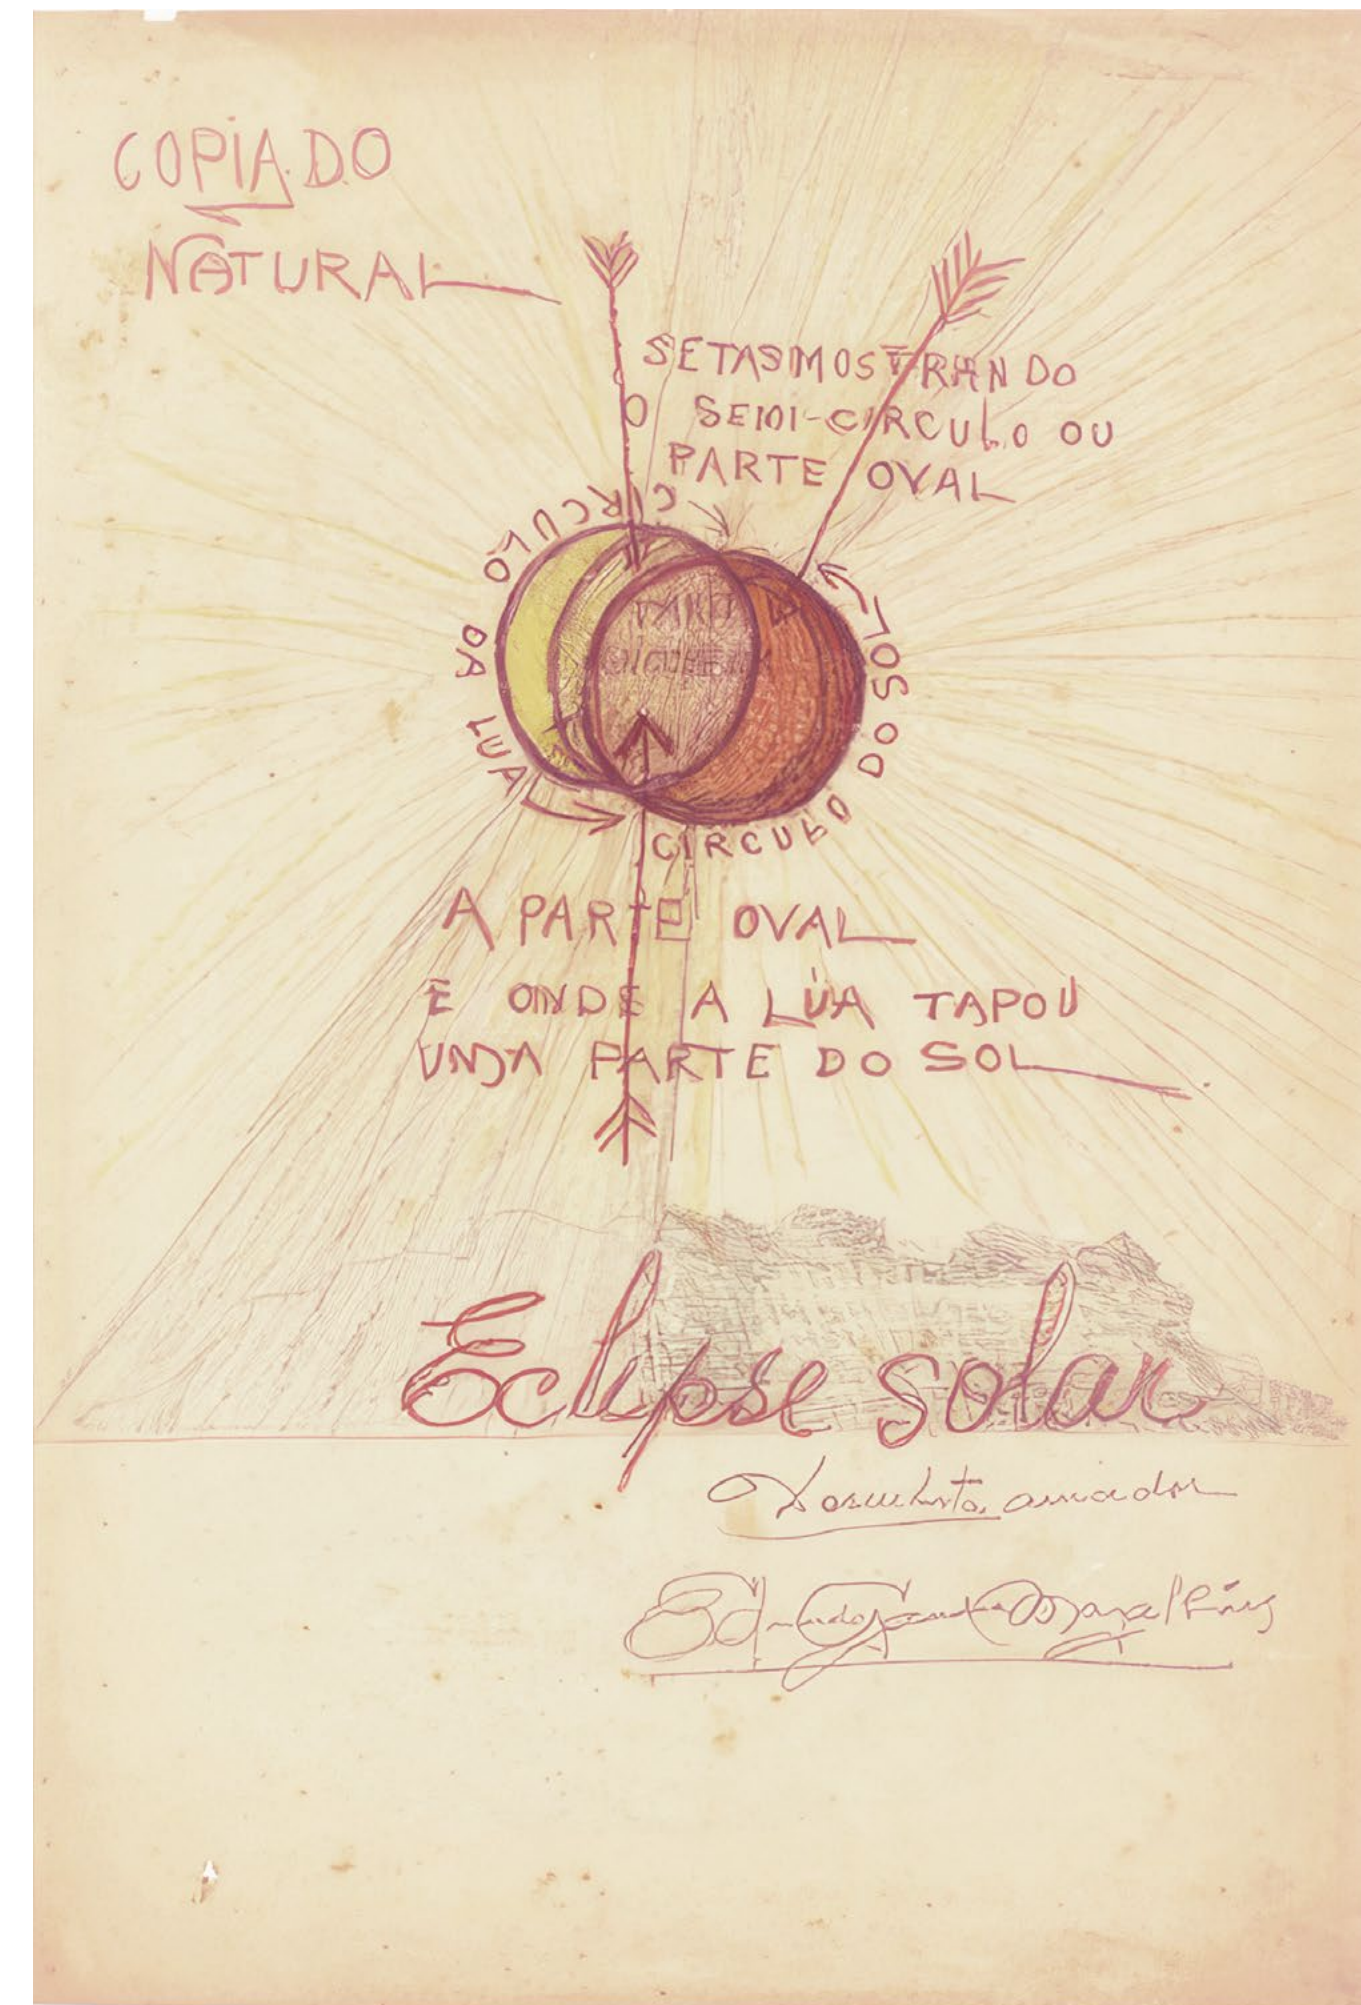 COPIADO
NATURAL
SETAS MOSTRANDO
O SEMI-CIRCULO OU
PARTE OVAL
CIRCULO DA LUA
CIRCULO DO SOL
PARTE
A PARTE OVAL
E ONDE A LÚA TAPOU
UMA PARTE DO SOL
Eclipse solar
amador
Magalhães